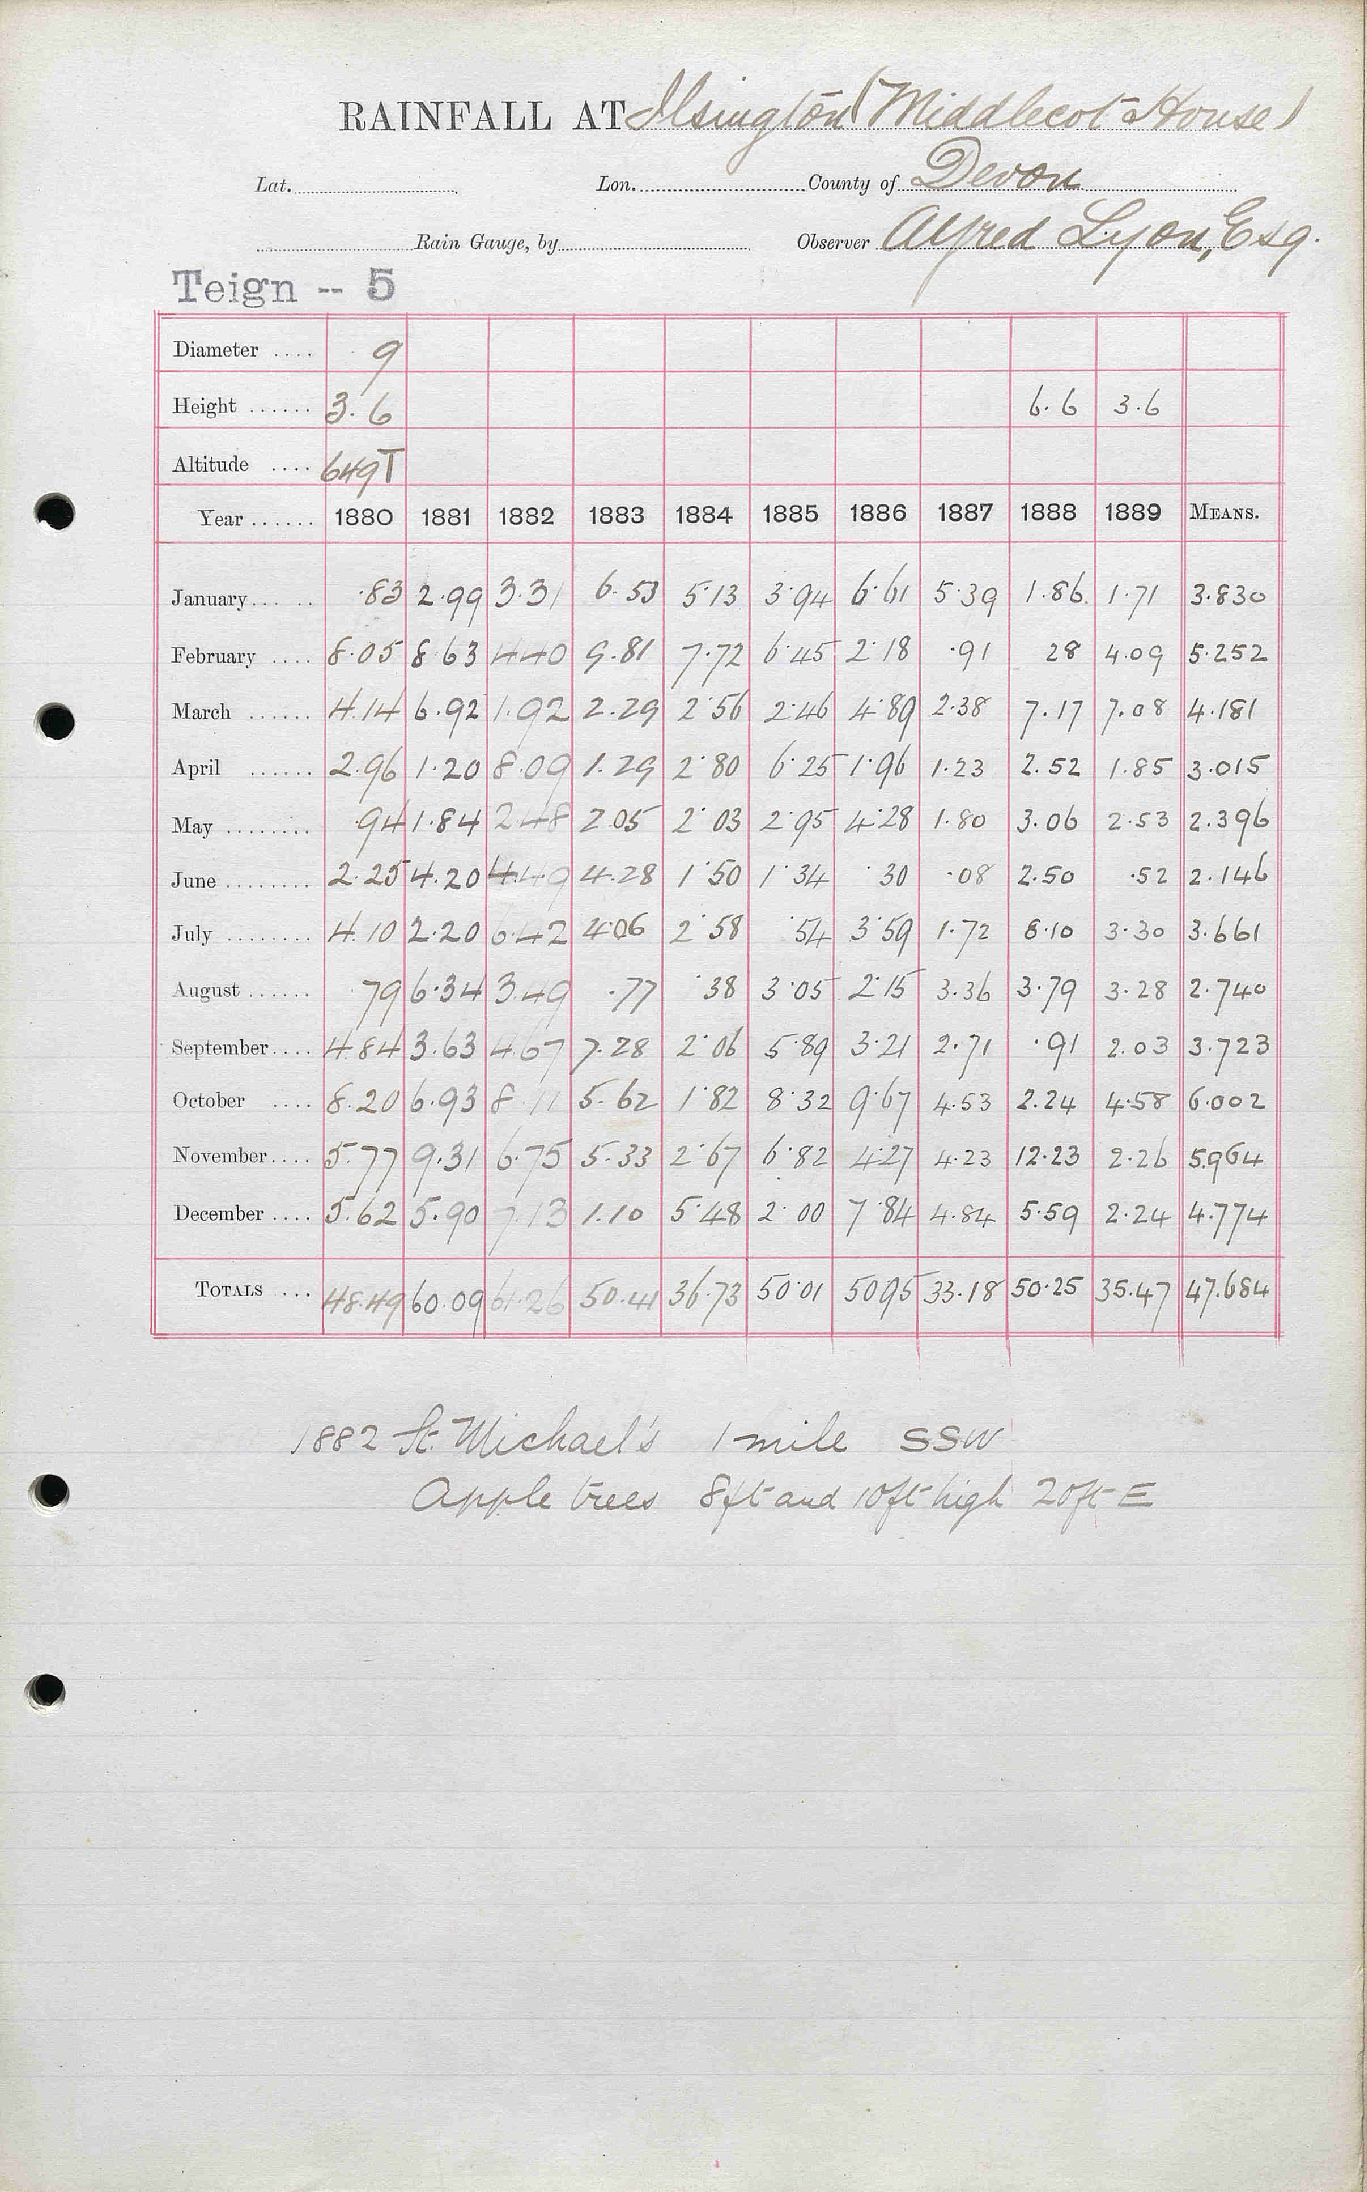 RAINFALL AT Ilsington (Middlecot House)
Lat. Lon. County of Devon
Rain Gauge, by Observer Alfred Lyon, Esq.
Teign -- 5
Diameter .... 9
Height ...... 3.6 6.6 3.6
Altitude .... 649T
Year ...... 1880 1881 1882 1883 1884 1885 1886 1887 1888 1889 MEANS.
January ... .83 2.99 3.31 6.53 5.13 3.94 6.61 5.39 1.86 1.71 3.830
February .... 8.05 8.63 4.40 9.81 7.72 6.45 2.18 .91 28 4.09 5.252
March ...... 4.14 6.92 1.92 2.29 2.56 2.46 4.89 2.38 7.17 7.08 4.181
April ...... 2.96 1.20 8.09 1.29 2.80 6.25 1.96 1.23 2.52 1.85 3.015
May ........ .94 1.84 2.48 2.05 2.03 2.95 4.28 1.80 3.06 2.53 2.396
June ........ 2.25 4.20 4.49 4.28 1.50 1.34 .30 .08 2.50 .52 2.146
July ........ 4.10 2.20 6.42 4.06 2.58 .54 3.59 1.72 8.10 3.30 3.661
August ...... .79 6.34 3.49 .77 .38 3.05 2.15 3.36 3.79 3.28 2.740
September.... 4.84 3.63 4.67 7.28 2.06 5.89 3.21 2.71 .91 2.03 3.723
October .... 8.20 6.93 8.11 5.62 1.82 8.32 9.67 4.53 2.24 4.58 6.002
November.... 5.77 9.31 6.75 5.33 2.67 6.82 4.27 4.23 12.23 2.26 5.964
December .... 5.62 5.90 7.13 1.10 5.48 2.00 7.84 4.84 5.59 2.24 4.774
TOTALS ... 48.49 60.09 61.26 50.41 36.73 50.01 50.95 33.18 50.25 35.47 47.684
1882 St. Michael's 1 mile SSW
Apple trees 8ft and 10ft high 20ft E